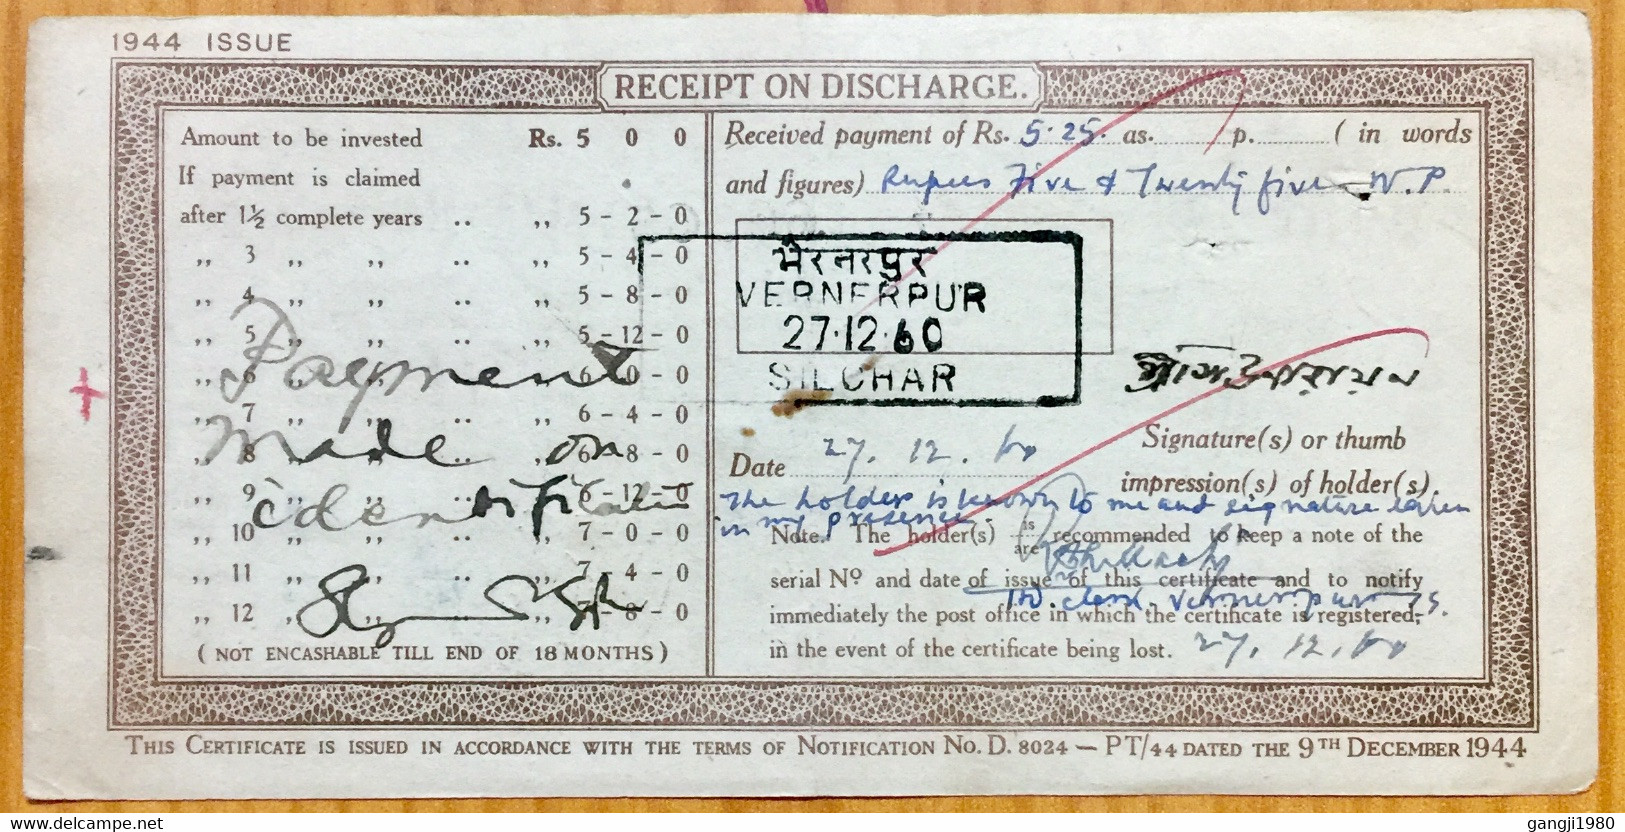 1944 ISSUE
RECEIPT ON DISCHARGE.
Amount to be invested Rs. 5 0 0
If payment is claimed
after 1½ complete years .. ,, 5 - 2 - 0
,, 3 ,, ,, .. ,, 5 - 4 - 0
,, 4 ,, ,, .. ,, 5 - 8 - 0
,, 5 ,, ,, .. ,, 5 - 12 - 0
,, 6 ,, ,, .. ,, 6 - 0 - 0
,, 7 ,, ,, .. ,, 6 - 4 - 0
,, 8 ,, ,, .. ,, 6 - 8 - 0
,, 9 ,, ,, .. ,, 6 - 12 - 0
,, 10 ,, ,, .. ,, 7 - 0 - 0
,, 11 ,, ,, .. ,, 7 - 4 - 0
,, 12 ,, ,, .. ,, 7 - 8 - 0
(NOT ENCASHABLE TILL END OF 18 MONTHS)
Payment
made on
identification
Received payment of Rs. 5.25. as. p. (in words
and figures) Rupees Five & Twenty five N.P.
भैरनरपुर
VERNERPUR
27.12.60
SILCHAR
Signature(s) or thumb
impression(s) of holder(s)
Date 27.12.60
The holder is known to me and signature taken
in my presence.
Note. The holder(s) is/are recommended to keep a note of the
serial No and date of issue of this certificate and to notify
immediately the post office in which the certificate is registered,
in the event of the certificate being lost.
clerk, Vernerpur
27.12.60
THIS CERTIFICATE IS ISSUED IN ACCORDANCE WITH THE TERMS OF NOTIFICATION NO. D. 8024 — PT/44 DATED THE 9TH DECEMBER 1944
gangji1980